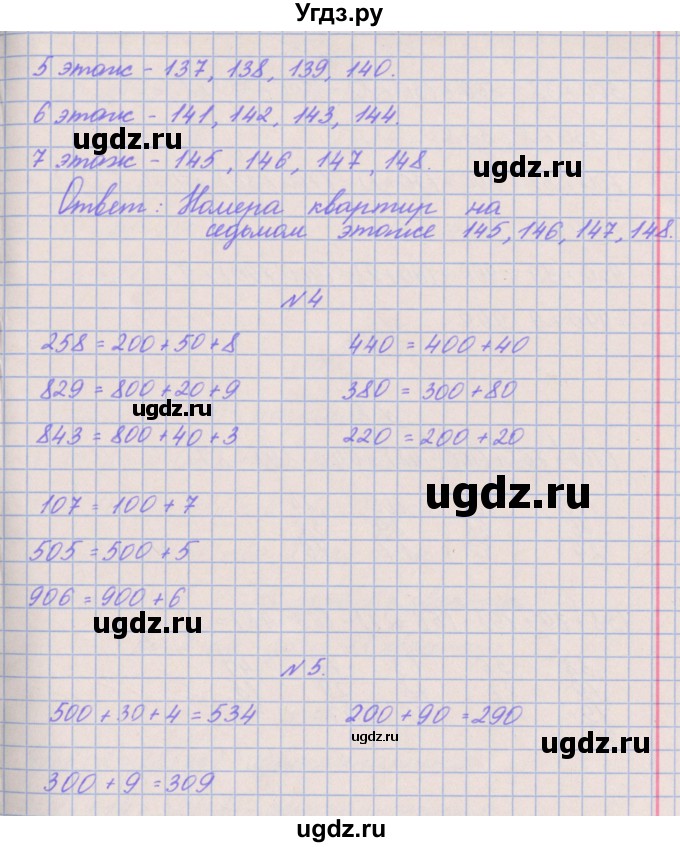 Угдз.ру
5 этаж - 137, 138, 139, 140.
6 этаж - 141, 142, 143, 144.
ugdz.ru
ugdz.ru
7 этаж - 145, 146, 147, 148.
Ответ: Номера квартир на
седьмом этаже 145, 146, 147, 148.
№4
258 = 200 + 50 + 8 440 = 400 + 40
829 = 800 + 20 + 9 380 = 300 + 80
ugdz.ru
843 = 800 + 40 + 3 220 = 200 + 20
ugdz.ru
107 = 100 + 7
505 = 500 + 5
906 = 900 + 6
ugdz.ru
№5.
500 + 30 + 4 = 534 200 + 90 = 290
ugdz.ru
ugdz.ru
300 + 9 = 309
ugdz.ru